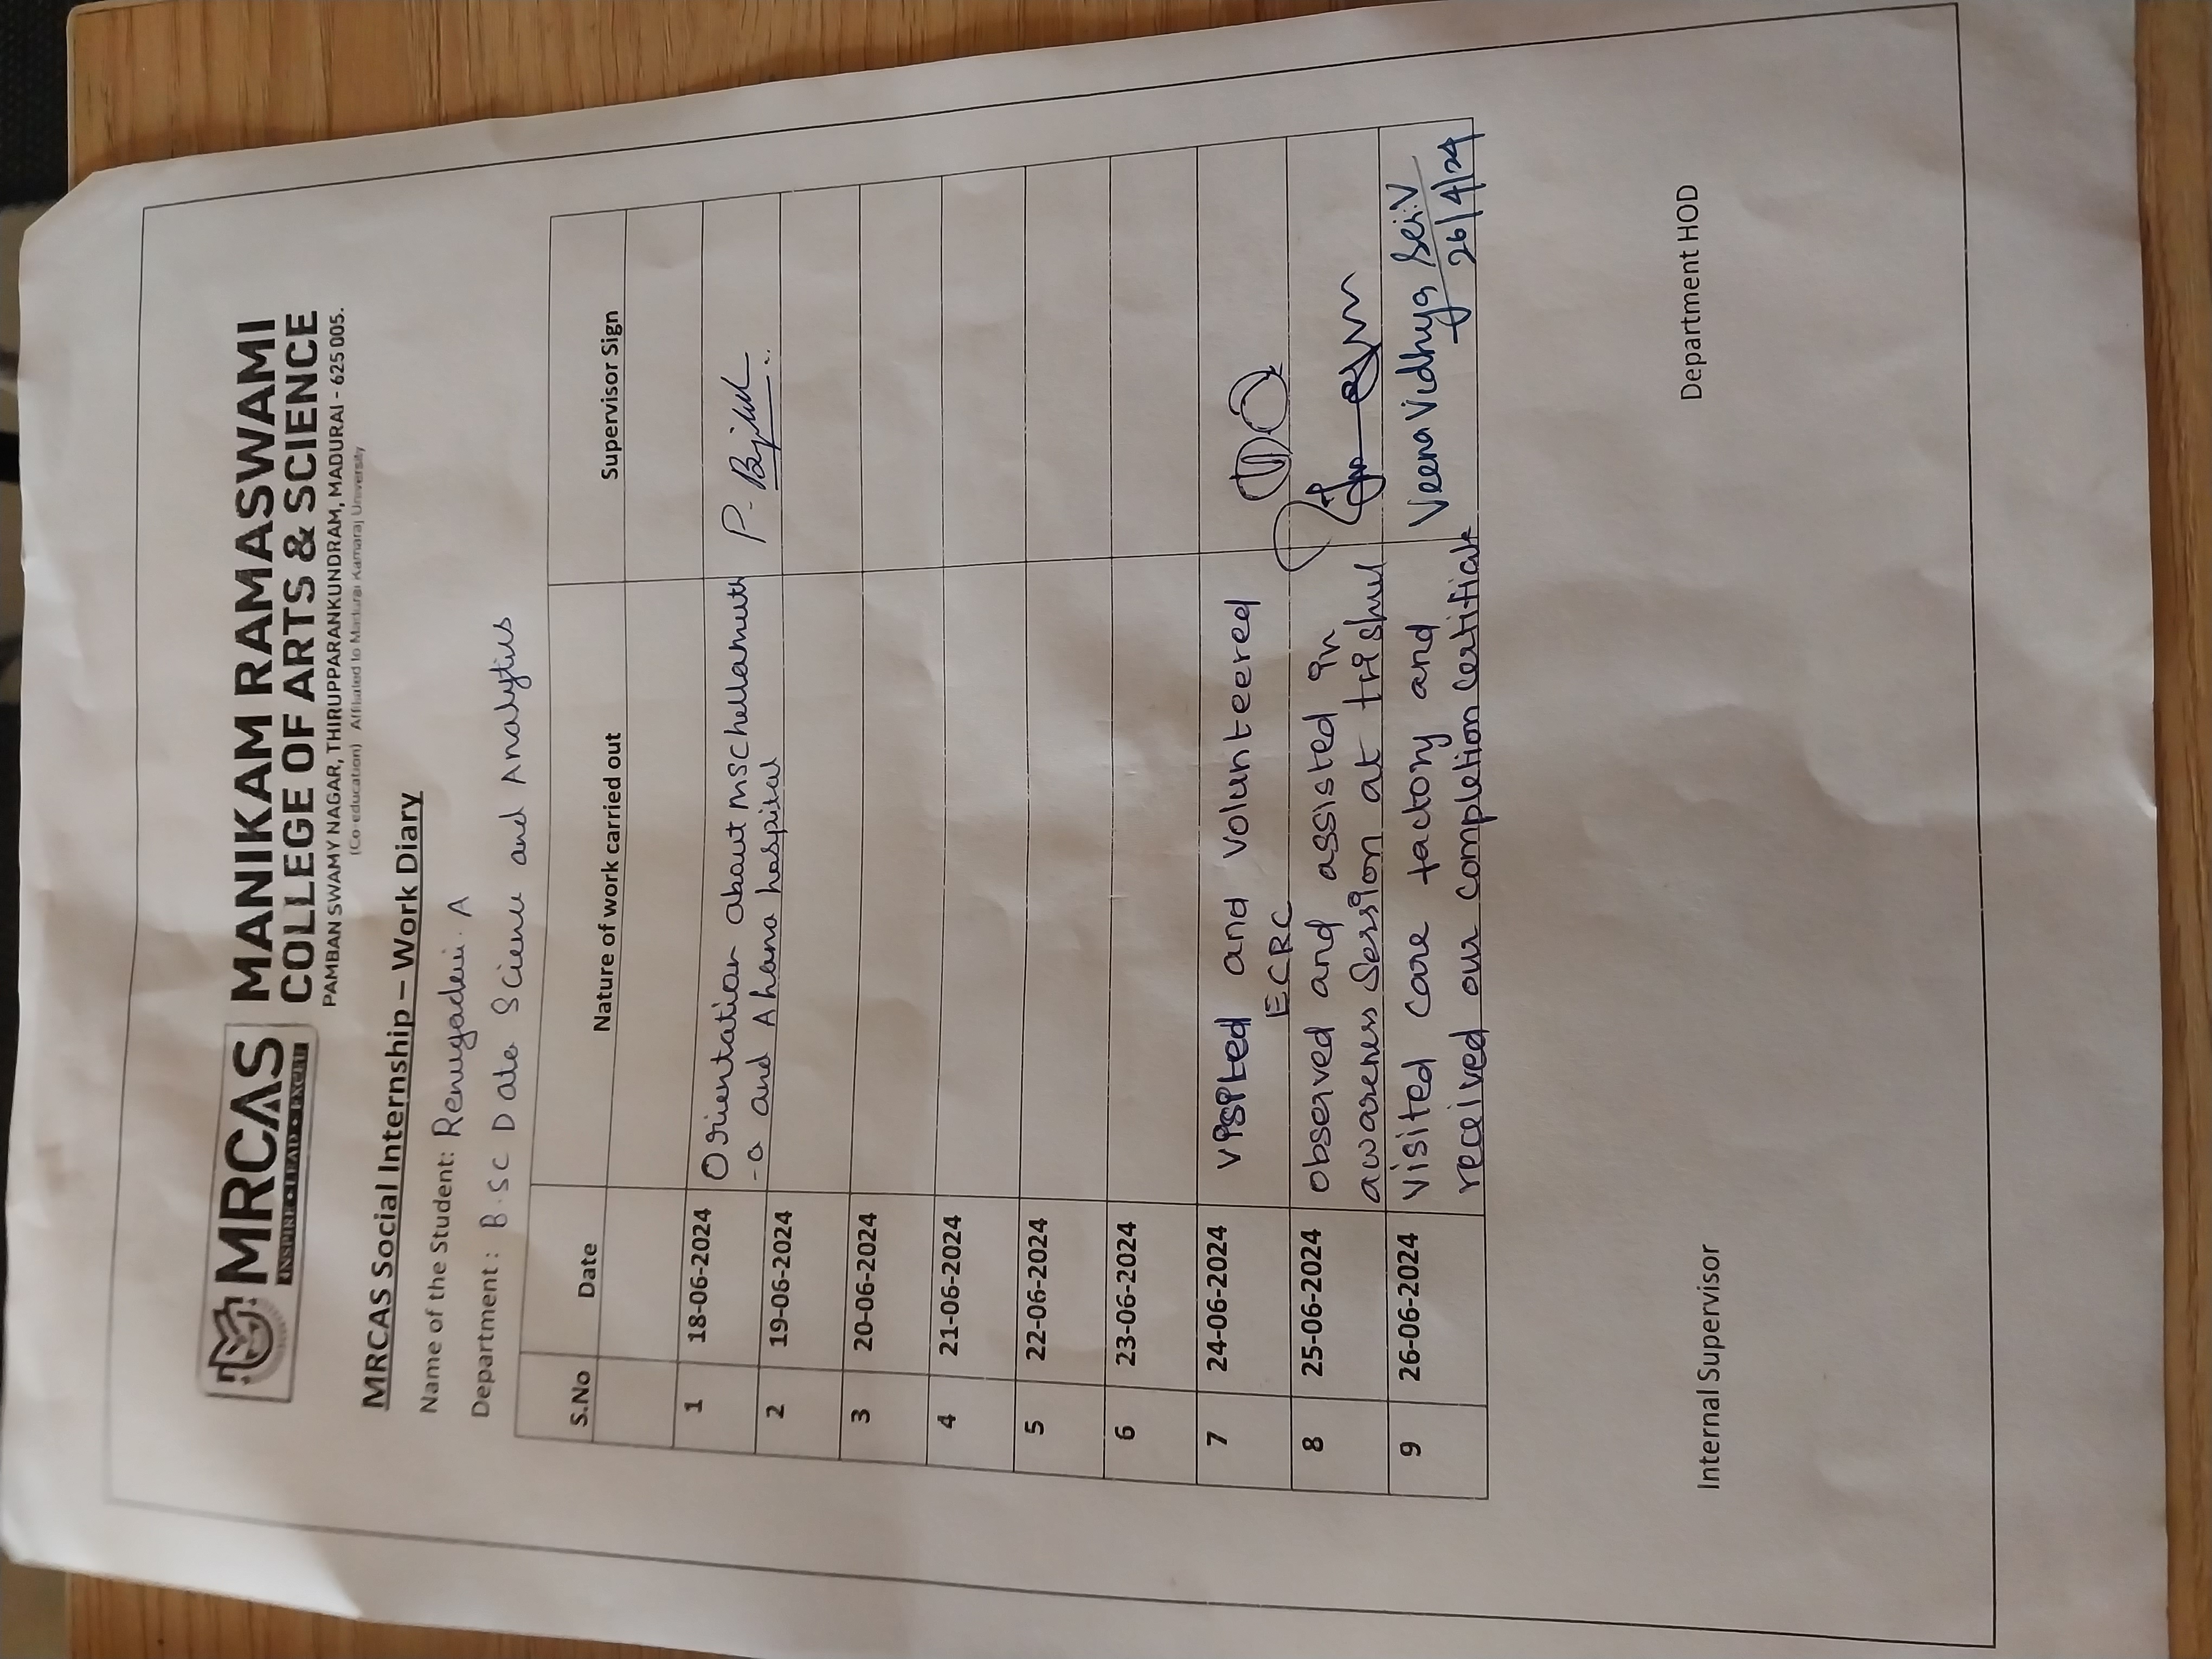 MRCAS
INSPIRE • LEAD • EXCEL
MANIKAM RAMASWAMI
COLLEGE OF ARTS & SCIENCE
PAMBAN SWAMY NAGAR, THIRUPPARANKUNDRAM, MADURAI - 625 005.
(Co-education) Affiliated to Madurai Kamaraj University
MRCAS Social Internship – Work Diary
Name of the Student: Renugadevi. A
Department : B.SC Data Science and Analytics
S.No Date Nature of work carried out Supervisor Sign
1 18-06-2024 Orientation about MSChellamuth
-a and Ahana hospital P.
2 19-06-2024
3 20-06-2024
4 21-06-2024
5 22-06-2024
6 23-06-2024
7 24-06-2024 visited and volunteered
ECRC
8 25-06-2024 observed and assisted in
awareness session at trishul
9 26-06-2024 visited care factory and Veena Vidhya
received our completion certificate 26/4/24
Internal Supervisor Department HOD